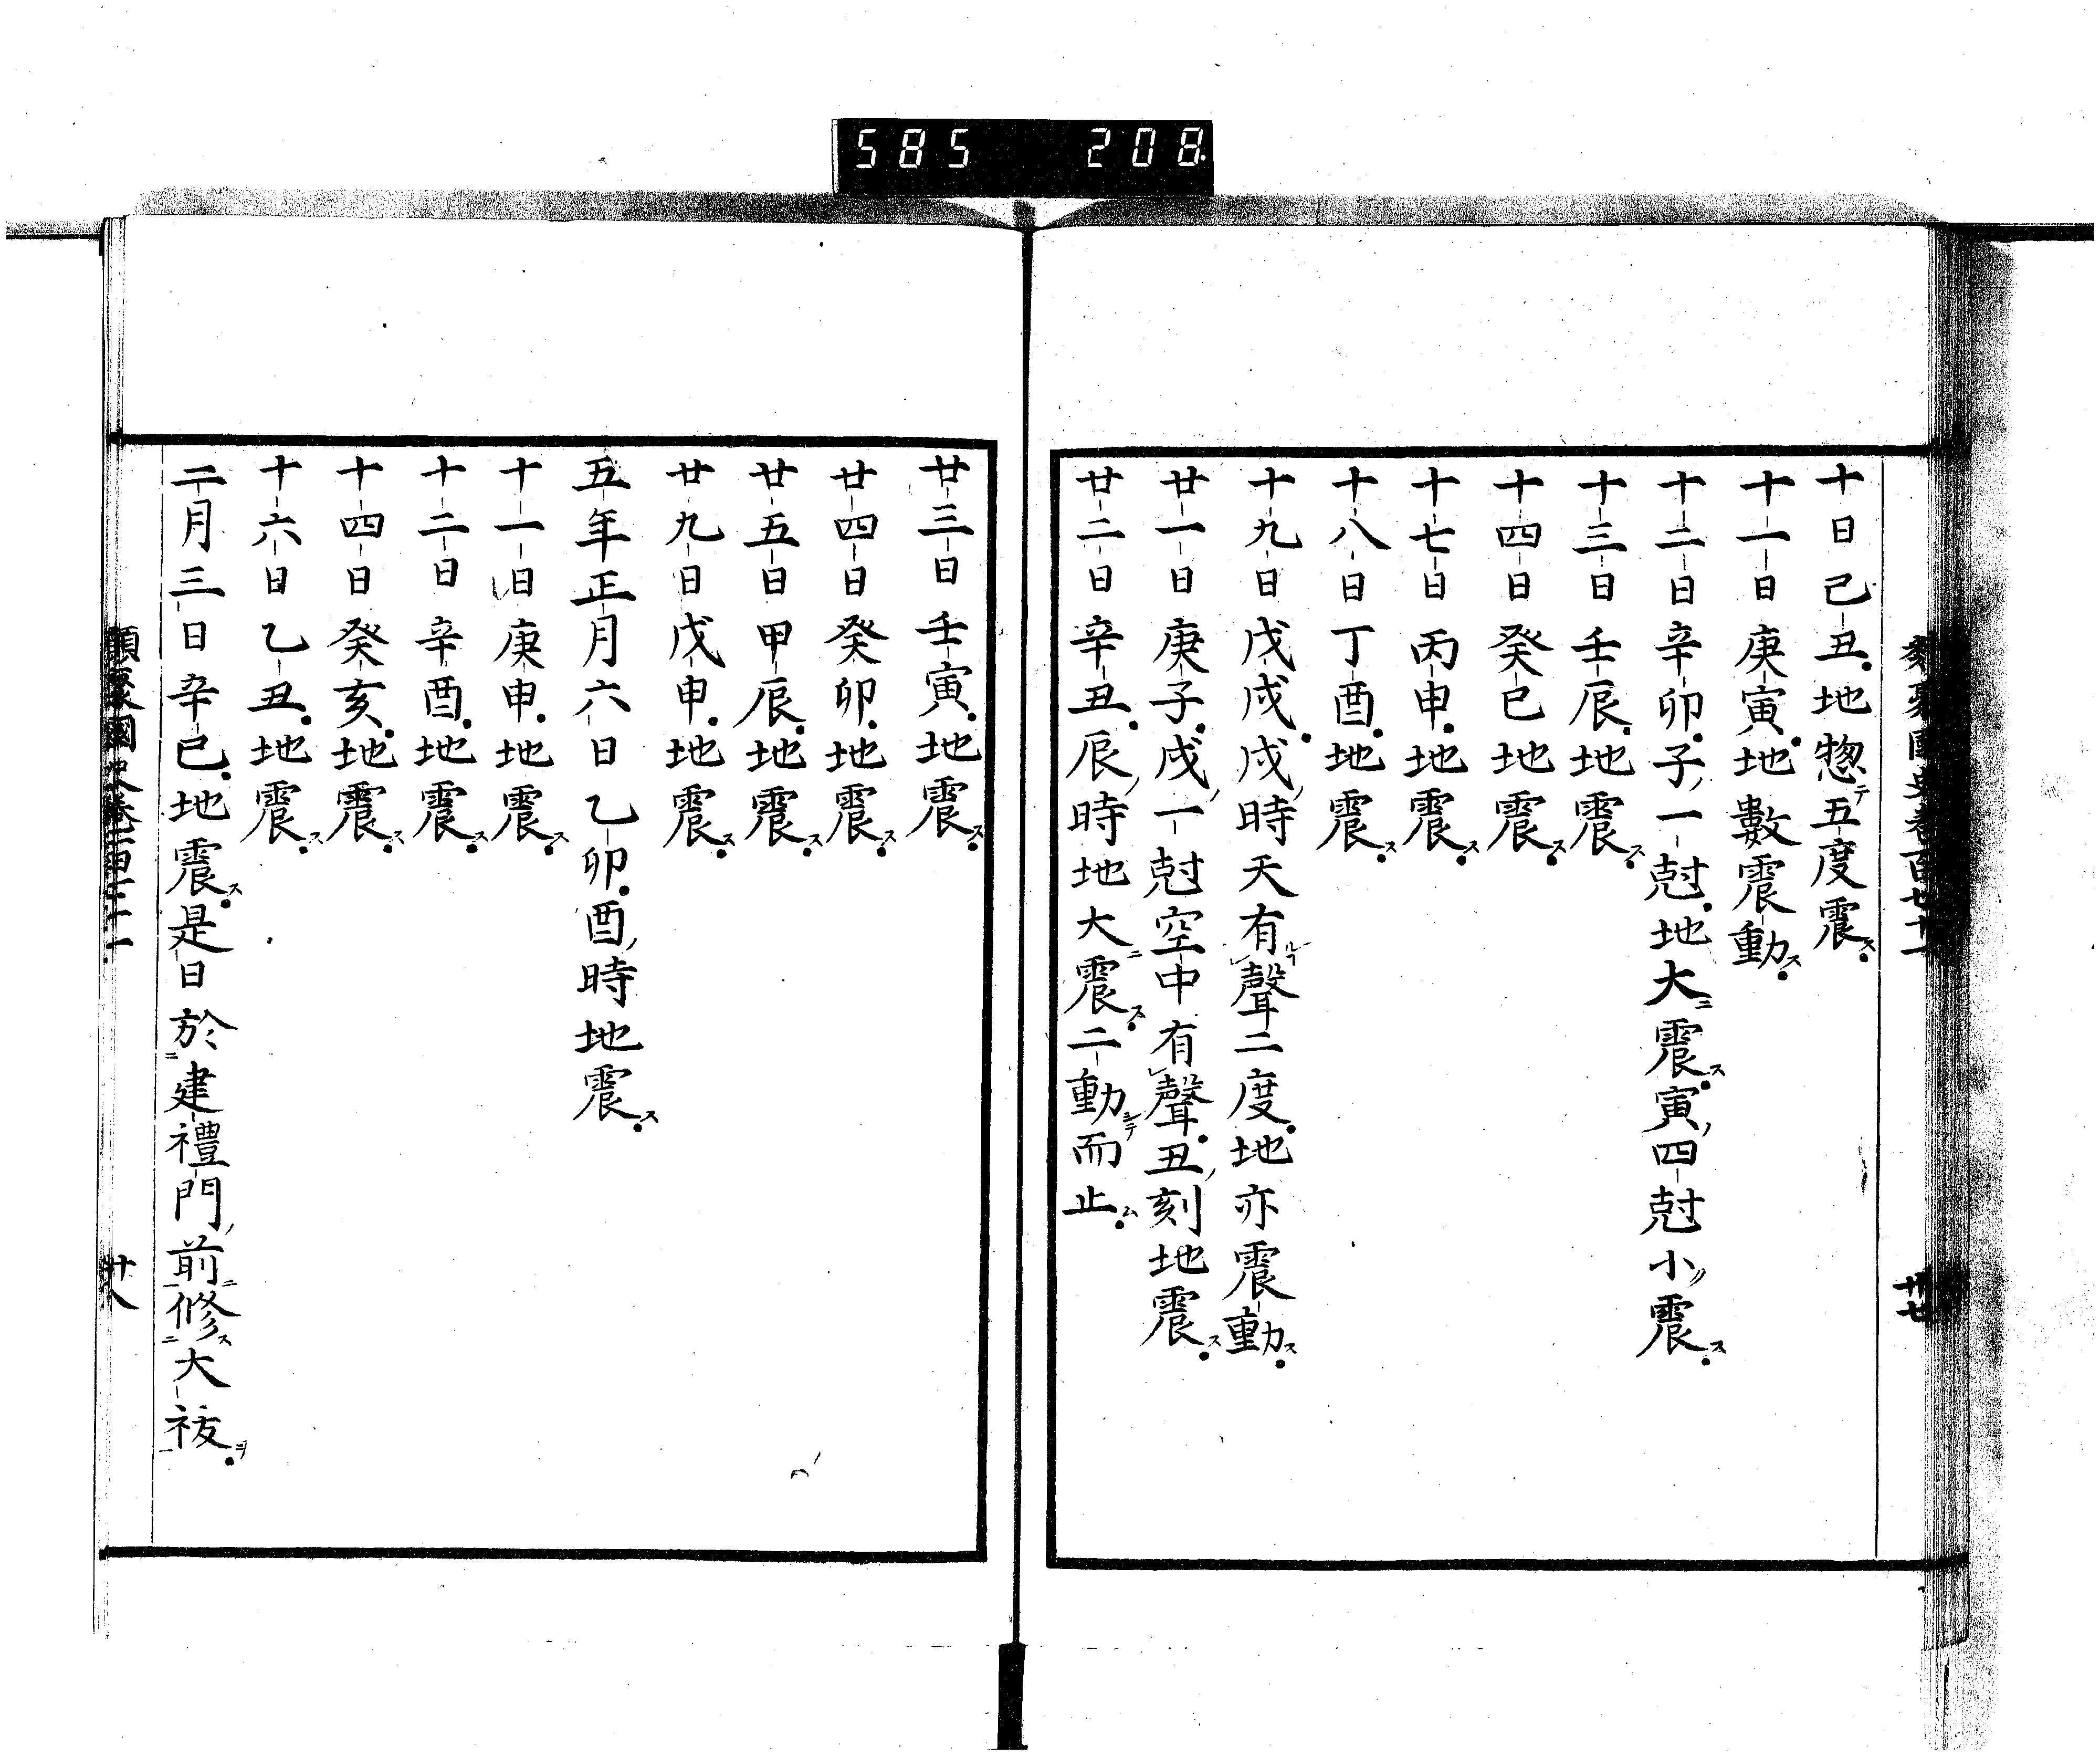 585 208
十日己丑地惣五度震
十一日庚寅地數震動
十二日辛卯子一尅地大震寅四尅小震
十三日壬辰地震
十四日癸巳地震
十七日丙申地震
十八日丁酉地震
十九日戊戌戌時天有聲二度地亦震動
廿一日庚子戌一尅空中有聲丑刻地震
廿二日辛丑辰時地大震二動而止
廿三日壬寅地震
廿四日癸卯地震
廿五日甲辰地震
廿九日戊申地震
五年正月六日乙卯酉時地震
十一日庚申地震
十二日辛酉地震
十四日癸亥地震
十六日乙丑地震
二月三日辛巳地震是日於建禮門前修大祓
廿八